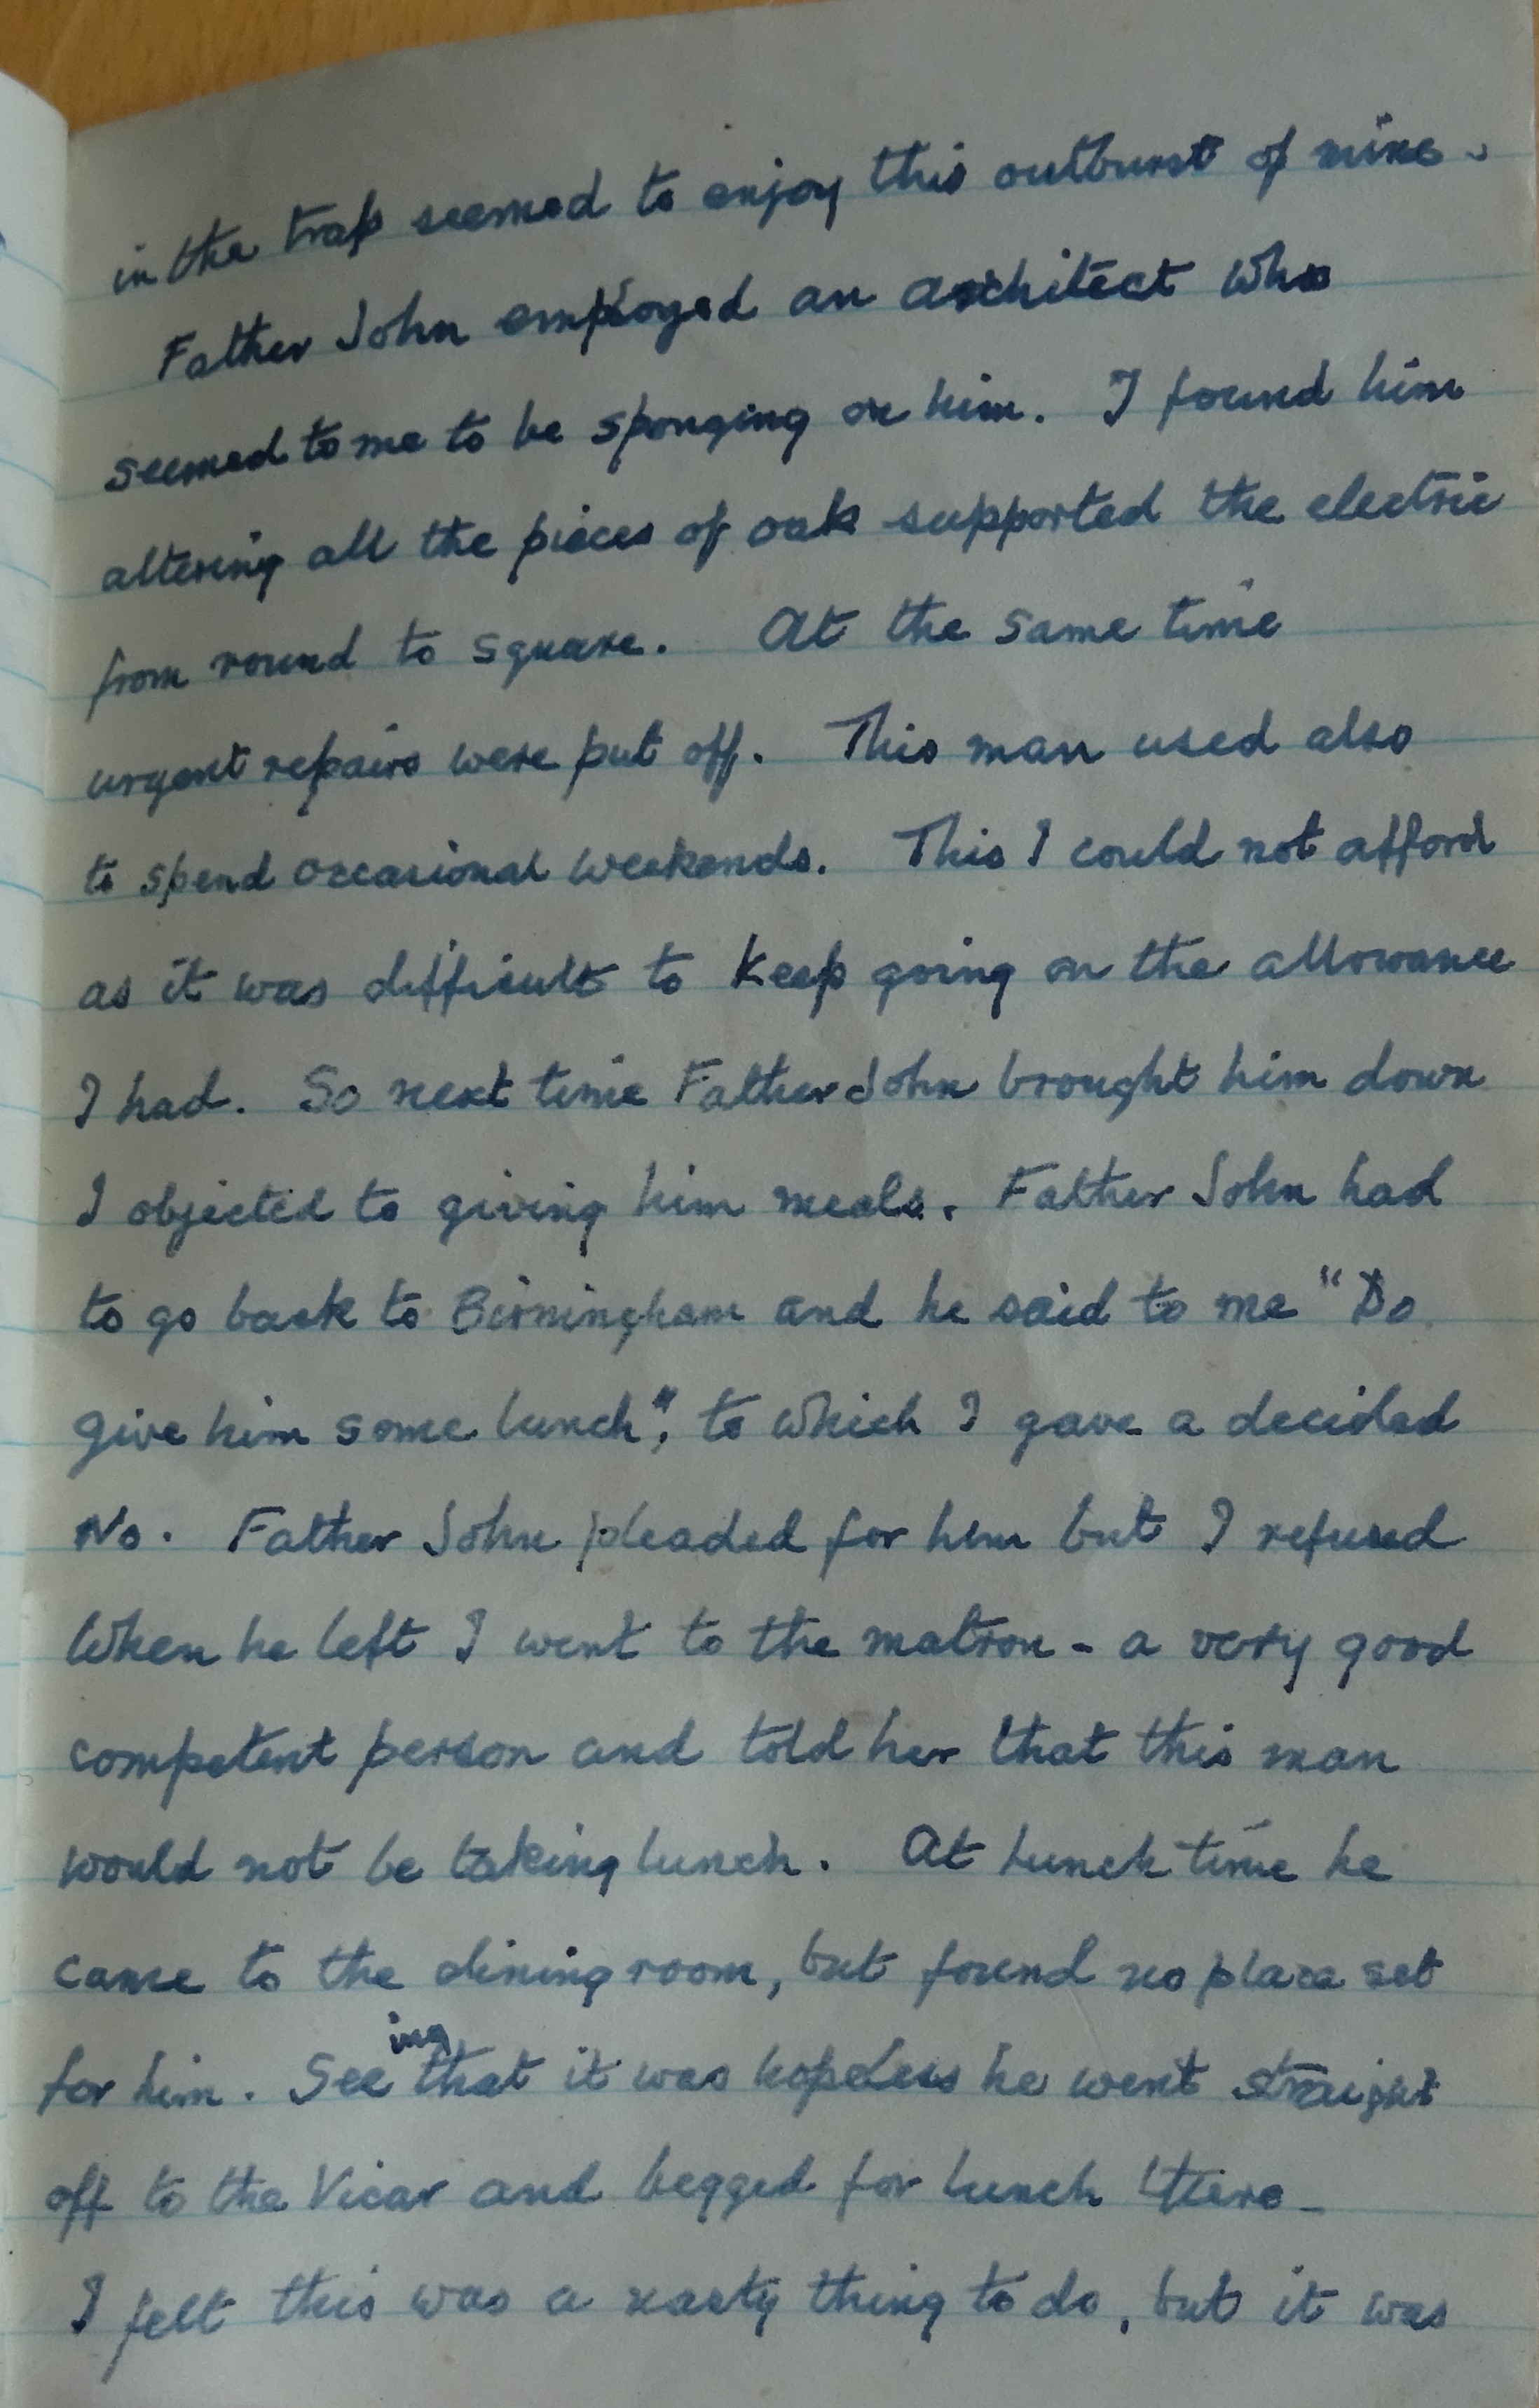 in the trap seemed to enjoy this outburst of mine.
Father John employed an architect who
seemed to me to be sponging on him. I found him
altering all the pieces of oak supported the electric
from round to square. At the same time
urgent repairs were put off. This man used also
to spend occasional weekends. This I could not afford
as it was difficult to keep going on the allowance
I had. So next time Father John brought him down
I objected to giving him meals. Father John had
to go back to Birmingham and he said to me "Do
give him some lunch", to which I gave a decided
No. Father John pleaded for him but I refused
When he left I went to the matron - a very good
competent person and told her that this man
would not be taking lunch. At lunch time he
came to the dining room, but found no place set
for him. Seeing that it was hopeless he went straight
off to the Vicar and begged for lunch there.
I felt this was a nasty thing to do, but it was